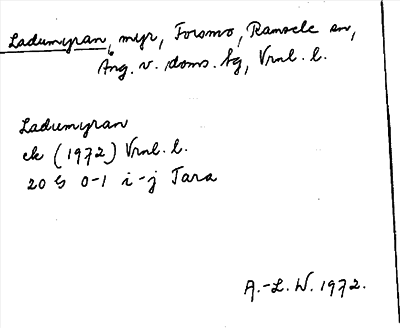 Ladumyran, myr, Forsmo, Ramsele sn,
Ång. v. doms. sg, Vrnl. l.
Ladumyran
ek (1972) Vrnl. l.
20 G 0-1 i-j Tara
A.-L. W. 1972.